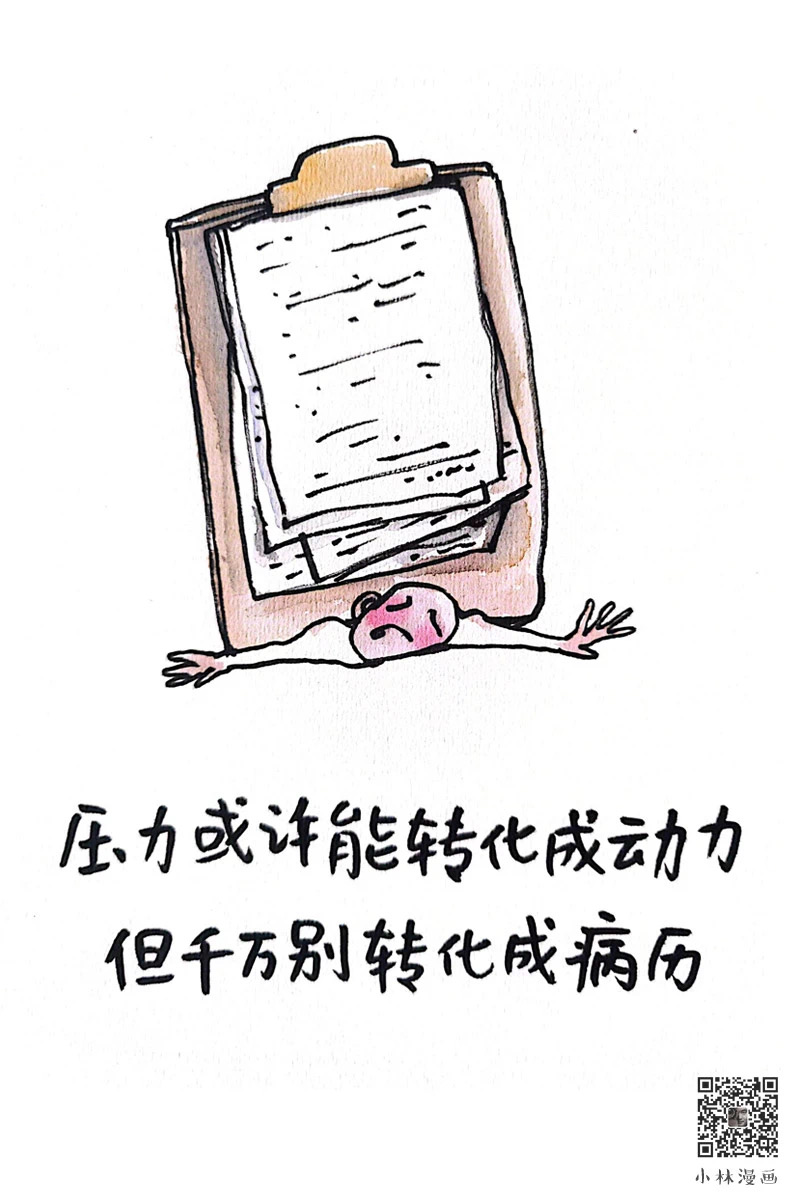 压力或许能转化成动力
但千万别转化成病历
小林漫画